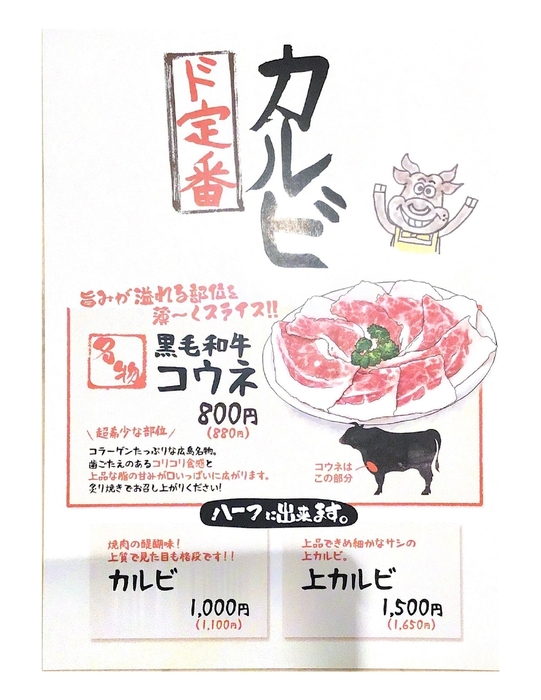 カルビ
ド定番
旨みが溢れる部位を
薄〜くスライス!!
名物
黒毛和牛
コウネ
800円
(880円)
\超希少な部位/
コラーゲンたっぷりな広島名物。
歯ごたえのあるコリコリ食感と
上品な脂の甘みが口いっぱいに広がります。
炙り焼きでお召し上がりください!
コウネは
この部分
ハーフに出来ます。
焼肉の醍醐味!
上質で見た目も格段です!!
カルビ
1,000円
(1,100円)
上品できめ細かなサシの
上カルビ。
上カルビ
1,500円
(1,650円)